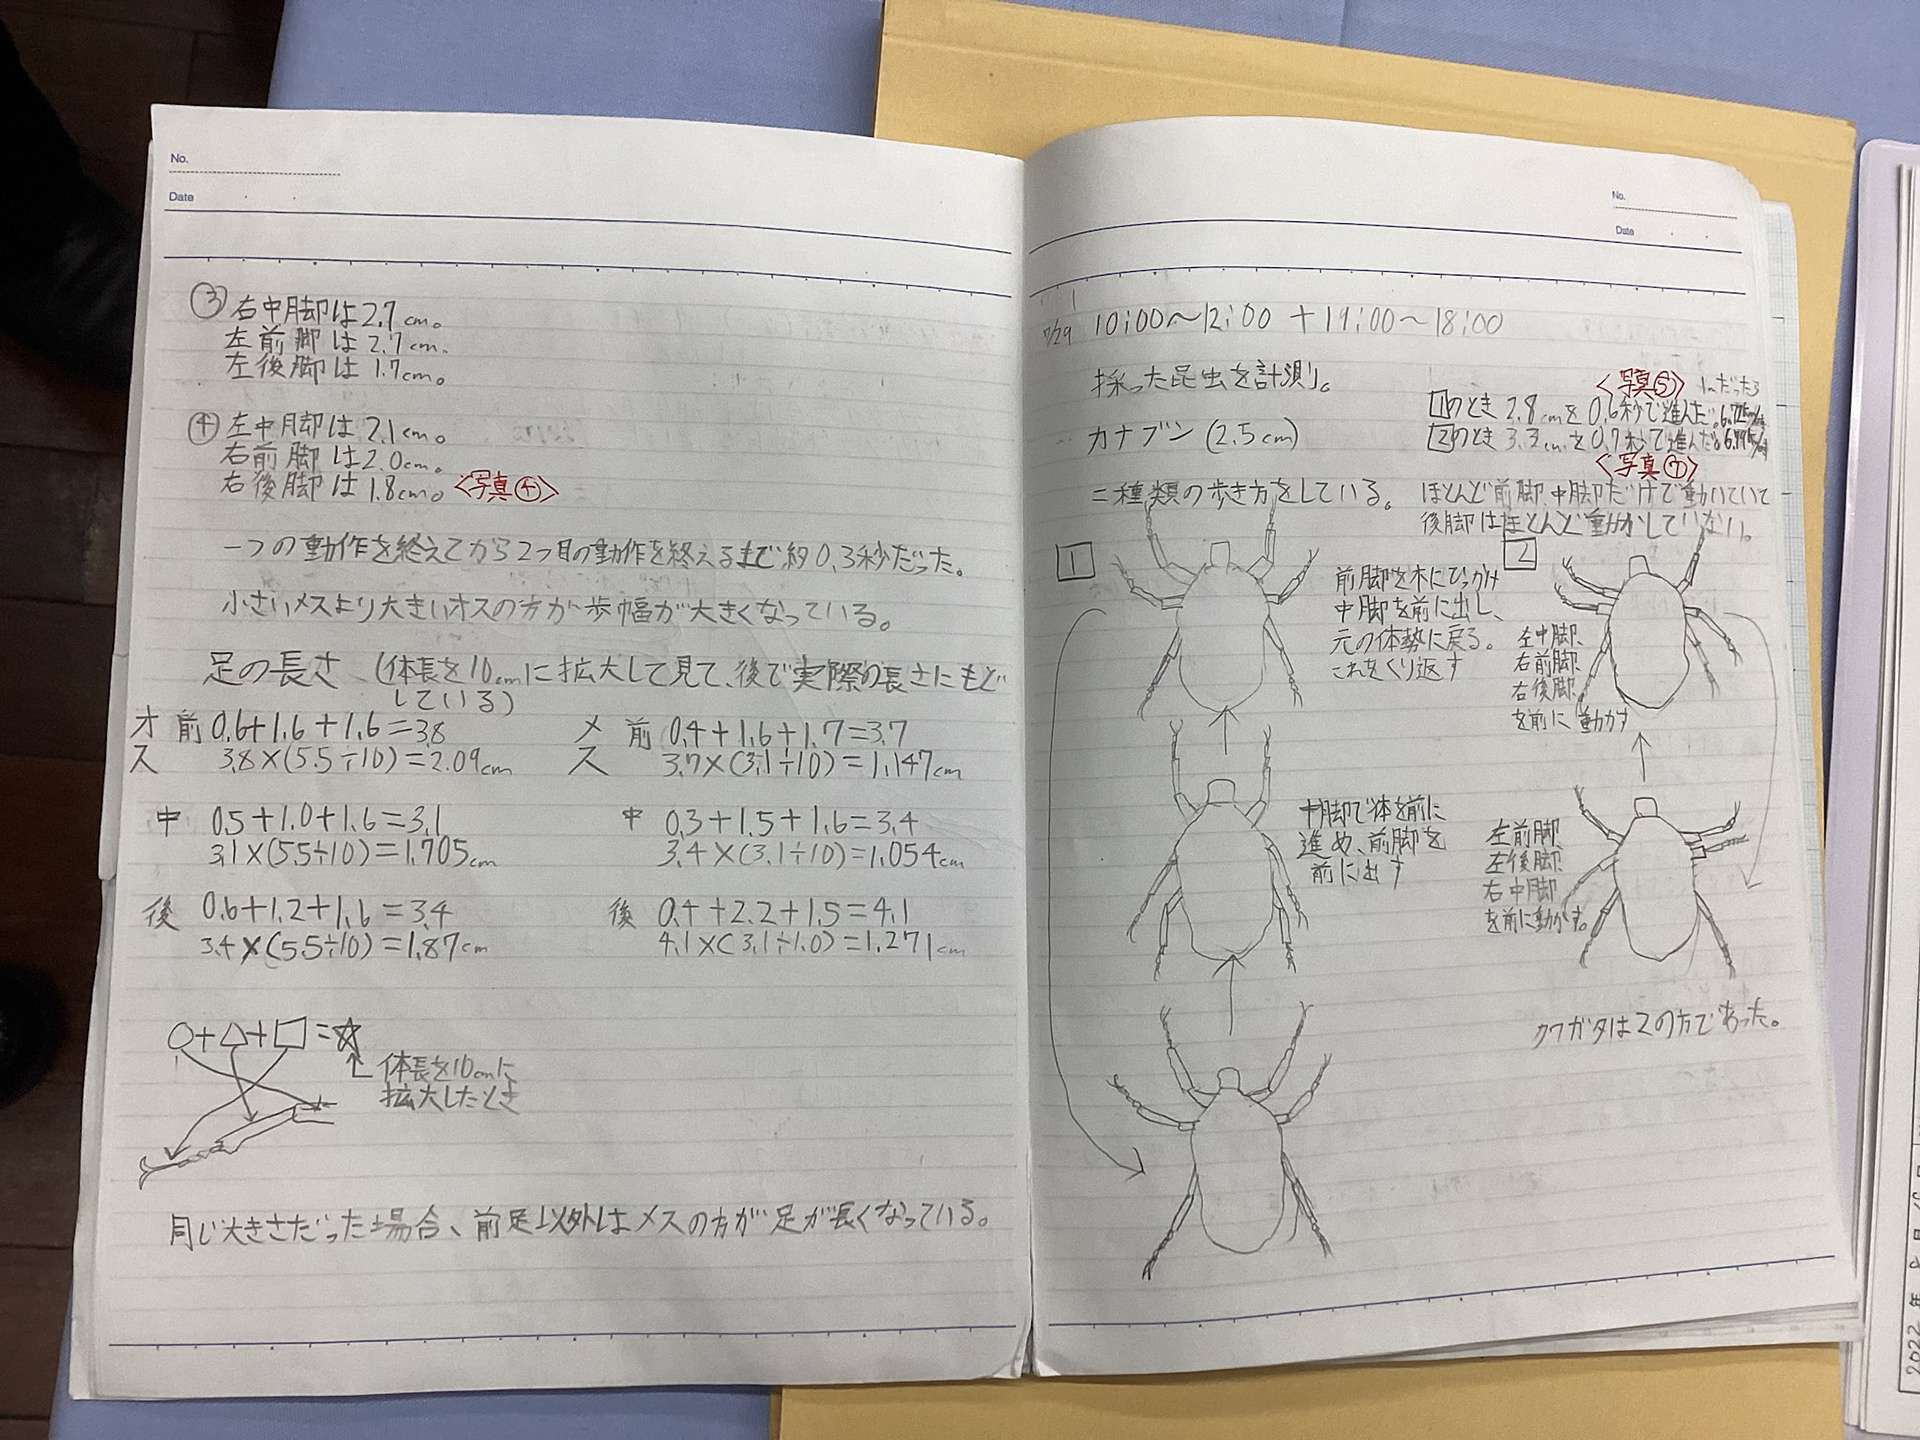 No.
Date
③ 右中脚は2.7cm。
左前脚は2.7cm.
左後脚は1.7cm。
④ 左中脚は2.1cm。
右前脚は2.0cm。
右後脚は1.8cm。<写真④>
一つの動作を終えてから2つ目の動作を終えるまで約0.3秒だった。
小さいメスより大きいオスの方が歩幅が大きくなっている。
足の長さ (体長を10cmに拡大して見て、後で実際の長さにもど
している)
オス 前 0.6+1.6+1.6=3.8
3.8×(5.5÷10)=2.09cm
中 0.5+1.0+1.6=3.1
3.1×(5.5÷10)=1.705cm
後 0.6+1.2+1.6=3.4
3.4×(5.5÷10)=1.87cm
メス 前 0.4+1.6+1.7=3.7
3.7×(3.1÷10)=1.147cm
中 0.3+1.5+1.6=3.4
3.4×(3.1÷10)=1.054cm
後 0.4+2.2+1.5=4.1
4.1×(3.1÷1.0)=1.271cm
○+△+□=☆
体長を10cmに
拡大したとき
同じ大きさだった場合、前足以外はメスの方が足が長くなっている。
No.
Date
7/29 10:00〜12:00 +17:00〜18:00
採った昆虫を計測。
カナブン (2.5cm)
二種類の歩き方をしている。
<写真⑤>
1のとき 2.8cmを0.6秒で進んだ。
2のとき 3.3cmを0.7秒で進んだ。
<写真⑦>
ほとんど前脚、中脚だけで動いていて
後脚はほとんど動かしていない。
1
前脚を木にひっかけ
中脚を前に出し、
元の体勢に戻る。
これをくり返す
中脚で体を前に
進め、前脚を
前に出す
2
左中脚、
右前脚、
右後脚、
を前に動かす
左前脚、
左後脚、
右中脚
を前に動かす。
クワガタは2の方であった。
2022年